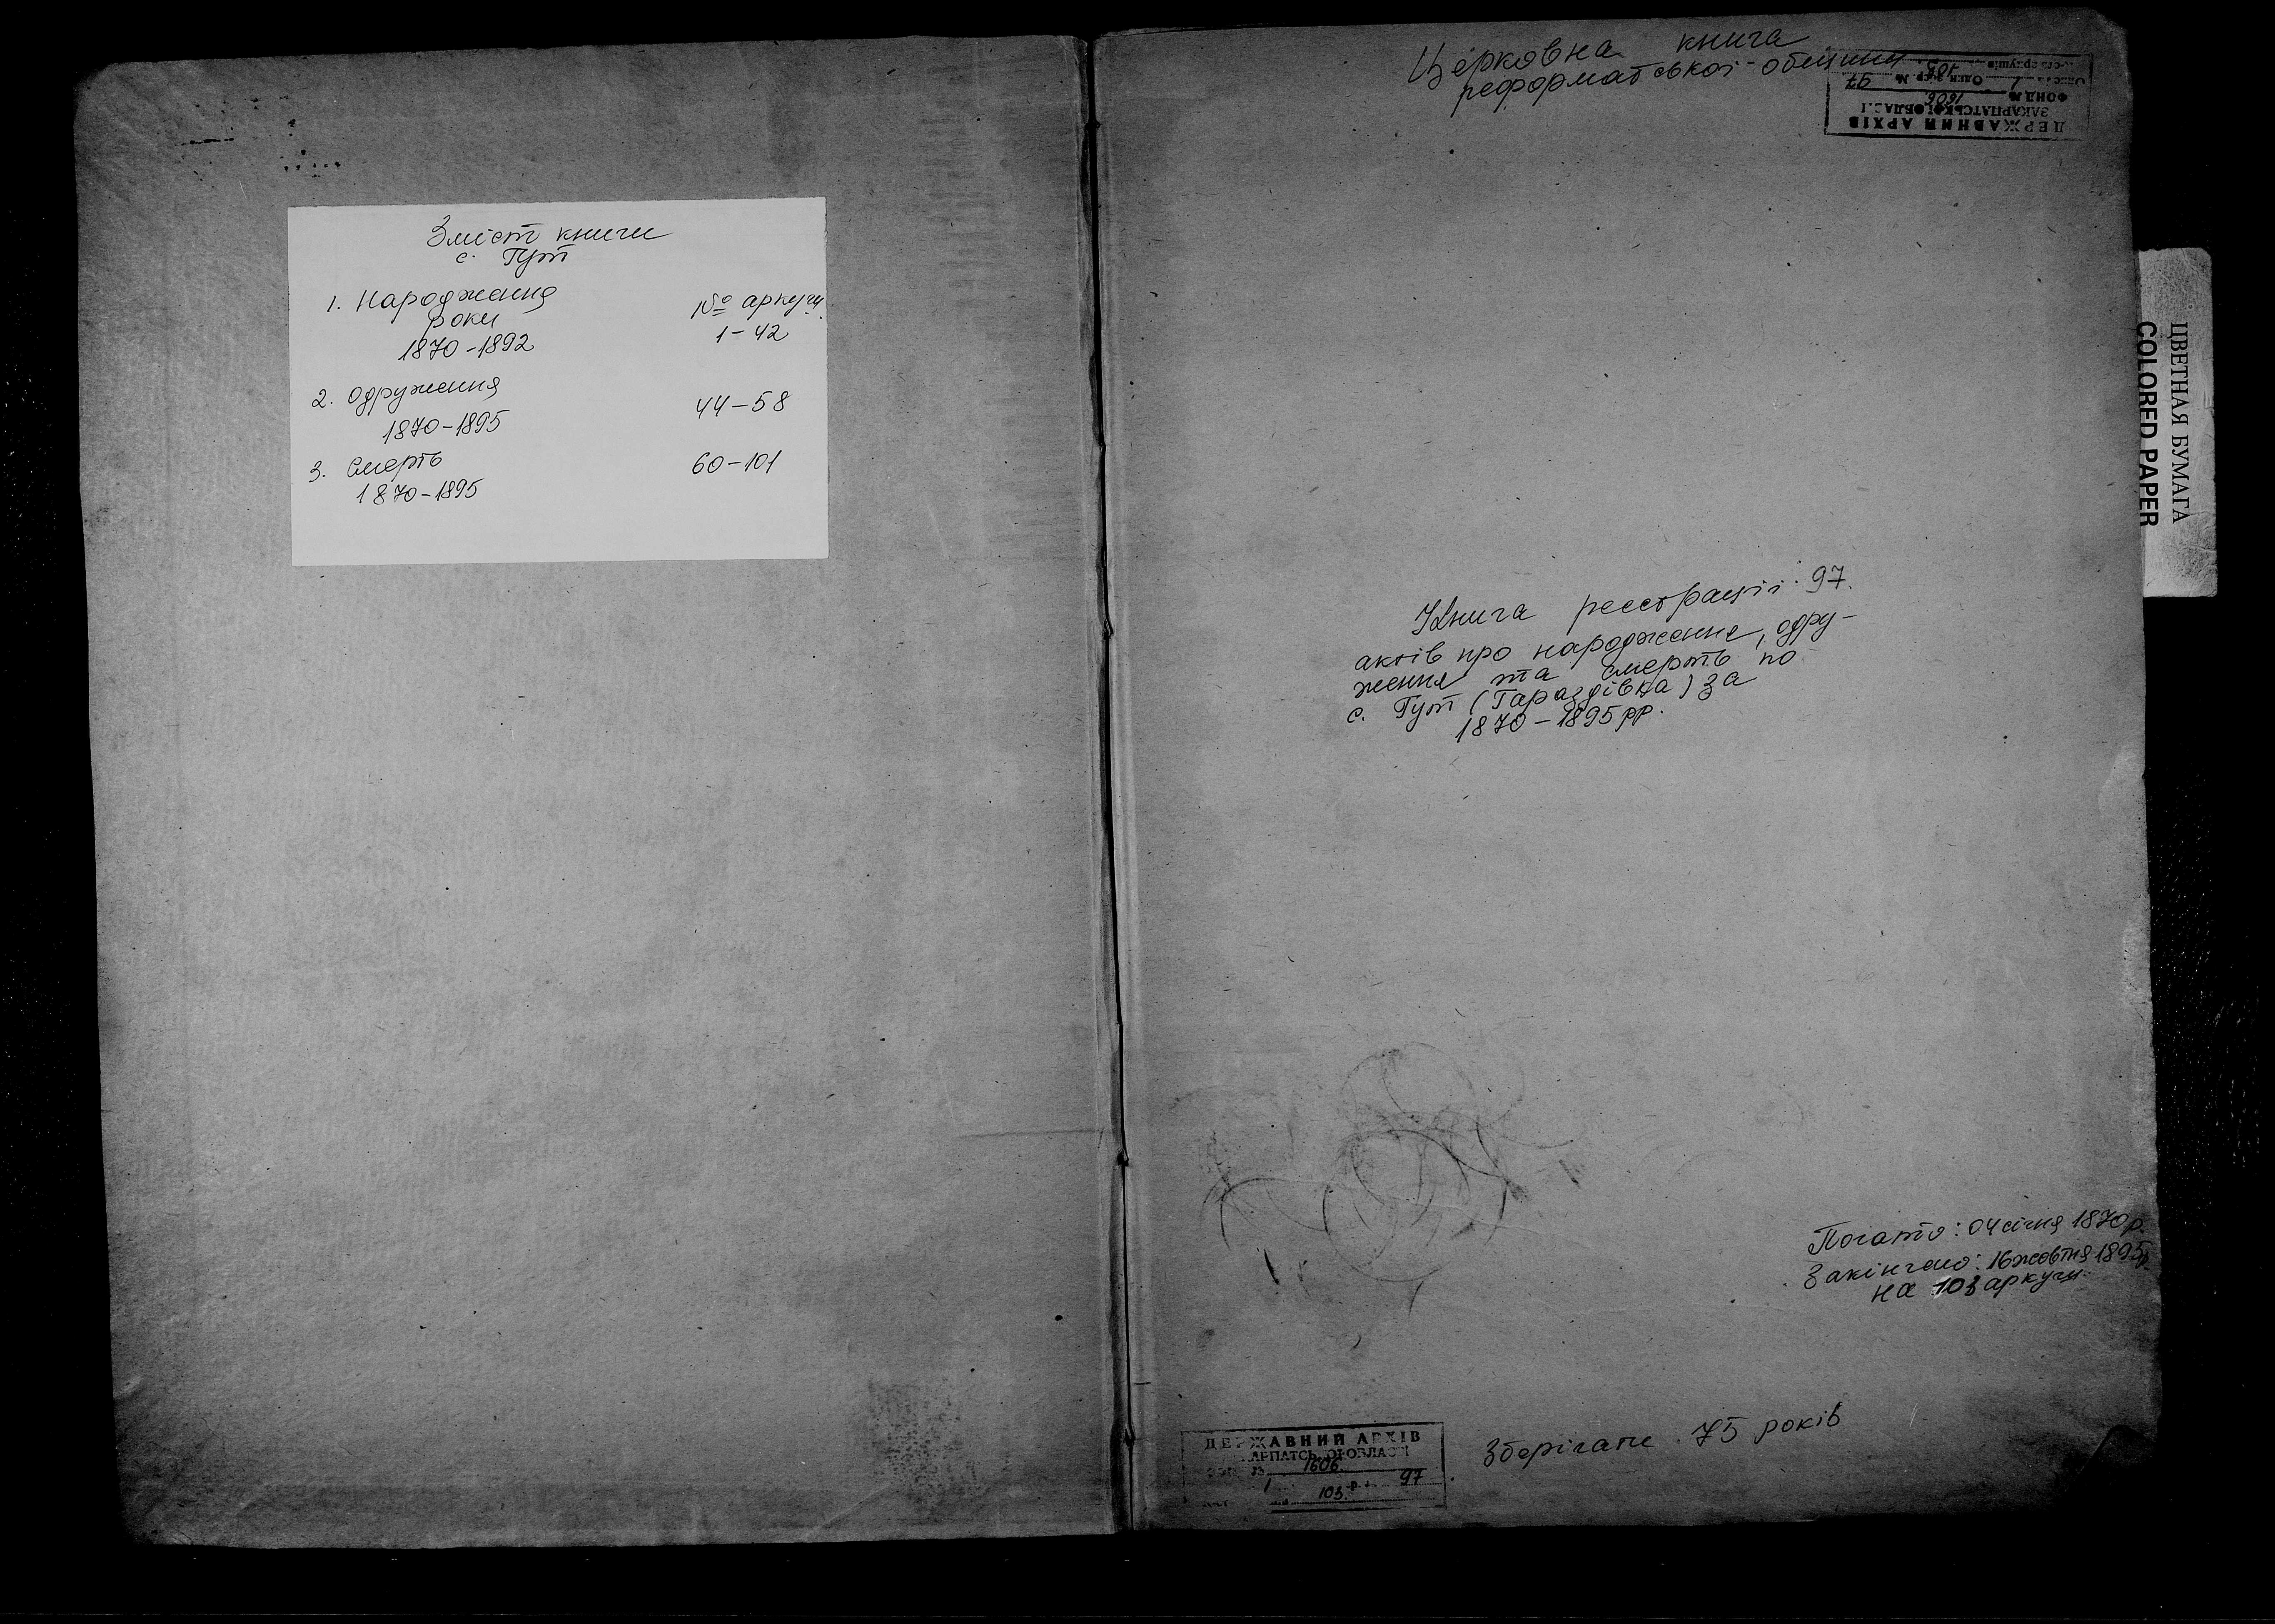 Зміст книги
с. Гут
1. Народження № аркушу
роки
1870-1892 1-42
2. Одруження 44-58
1870-1895
3. Смерть 60-101
1870-1895
Церковна книга
реформатської общини
ДЕРЖАВНИЙ АРХІВ
ЗАКАРПАТСЬКОЇ ОБЛАСТІ
ФОНД № 1606
Опис 1 Один. зб. № 97
103
ЦВЕТНАЯ БУМАГА
COLORED PAPER
Книга реєстрації 97.
актів про народження, одру-
ження та смерть по
с. Гут (Гараздівка) за
1870-1895 рр.
Почато: 04 січня 1870 р.
Закінчено: 16 жовтня 1895р.
на 103 аркуши
Зберігати 75 років
ДЕРЖАВНИЙ АРХІВ
ЗАКАРПАТСЬКОЇ ОБЛАСТІ
1606
1 97
103